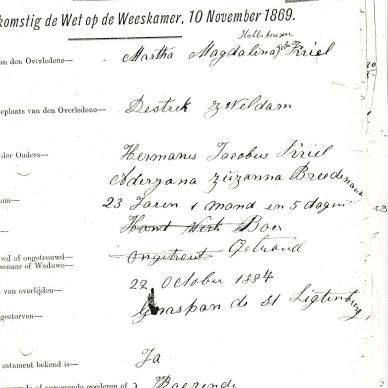 komstig de Wet op de Weeskamer, 10 November 1869.
Holtshausen
an den Overledene— Martha Magdalena geb Kriel
eplants van den Overledene— Destrek Z Weldam
der Ouders— Hermanus Jacobus Kriel
Aderyana Zuzanna Breedenhann
om— 23 Jaren 1 mand en 5 dagen
Hand Werk Boer
wd of ongetrouwd— ongetrout Getroud
wenaar of Weduwe—
van overlijden— 22 October 1884
gestorven— Graspan de st Ligtenburg
estament bekend is— Ja